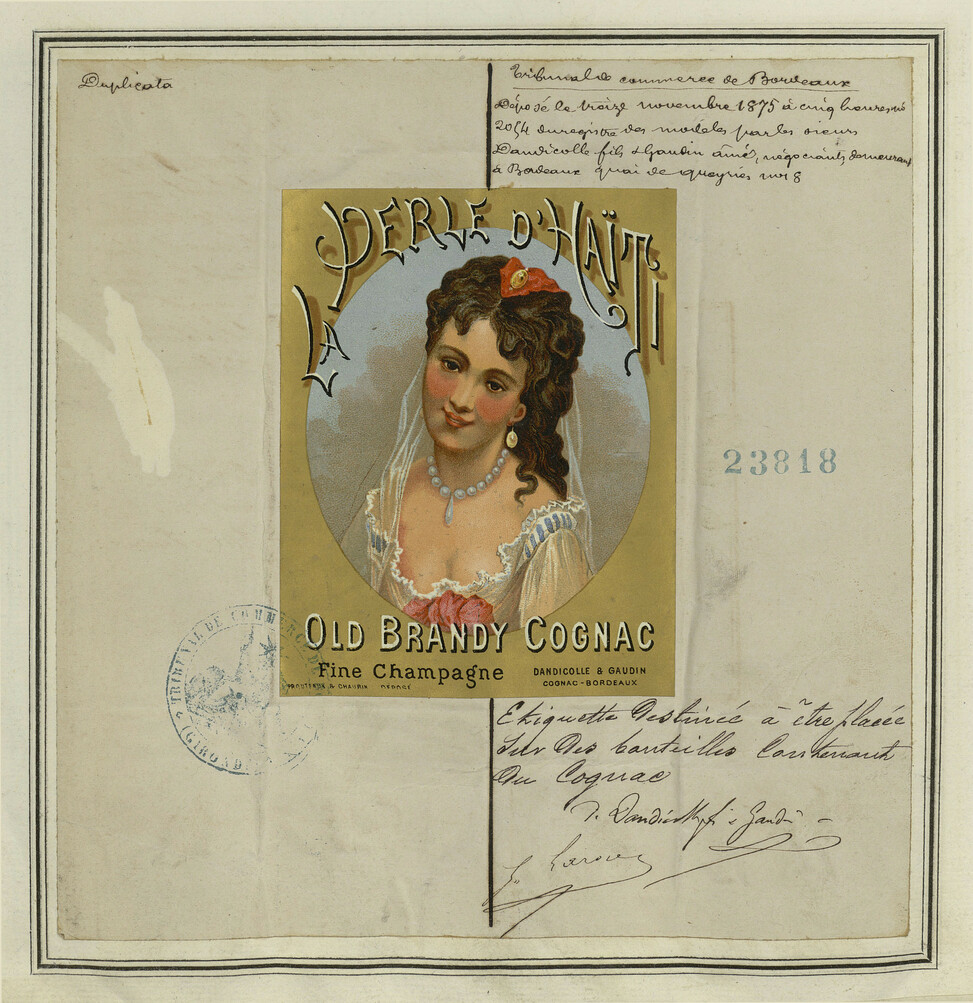 Duplicata
Tribunal de commerce de Bordeaux
Déposé le treize novembre 1875 à cinq heures no
2054 du registre des modèles par les sieurs
Dandicolle fils & Gaudin ainé, négociants, demeurant
à Bordeaux quai de Queyries no 8
LA PERLE D'HAÏTI
23818
OLD BRANDY COGNAC
Fine Champagne
DANDICOLLE & GAUDIN
COGNAC - BORDEAUX
& CHAURIN DÉPOSÉ
TRIBUNAL DE COMMERCE DE
(GIRONDE)
Etiquette Destinée à être placée
Sur Des bouteilles Contenant
Du Cognac